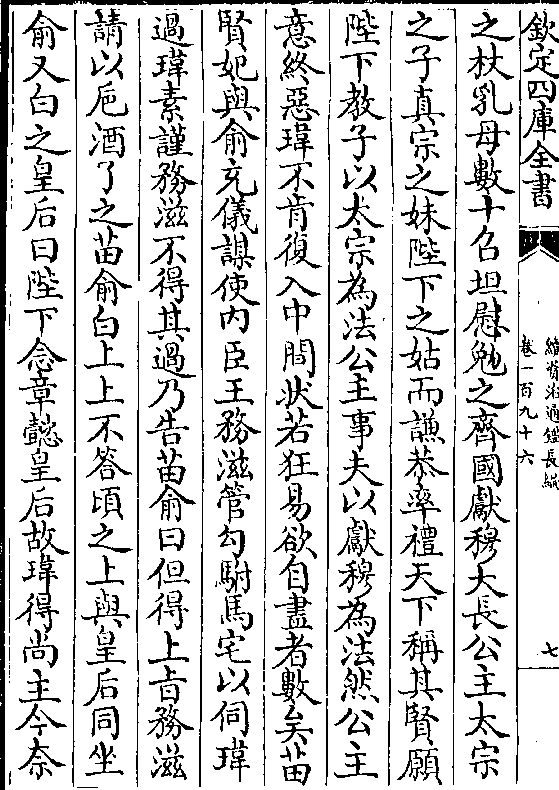 欽定四庫全書
續資治通鑑長編
卷一百九十六
七
之杖乳母數十召坦慰勉之齊國獻穆大長公主太宗
之子真宗之妹陛下之姑而謙恭率禮天下稱其賢願
陛下教子以太宗為法公主事夫以獻穆為法然公主
意終惡瑋不肯復入中閤狀若狂易欲自盡者數矣苗
賢妃與俞充儀謀使内臣王務滋管勾駙馬宅以伺瑋
過瑋素謹務滋不得其過乃告苗俞曰但得上旨務滋
請以巵酒了之苗俞白上上不答頃之上與皇后同坐
俞又白之皇后曰陛下念章懿皇后故瑋得尚主今奈